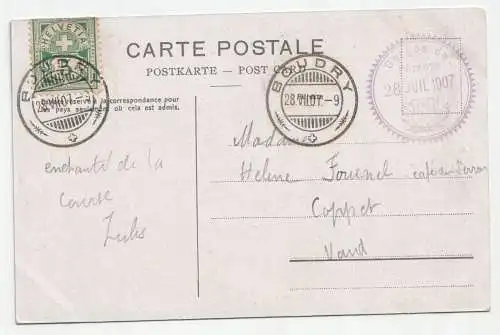 HELVETIA
CARTE POSTALE
POSTKARTE - POST
BOUDRY
28.VII.07.-9
BOUDRY
28 JUIL 1907
réservé à la correspondance pour
pays où cela est admis.
enchanté de la
course
Madame
Helene Fournel
Coppet
Vaud